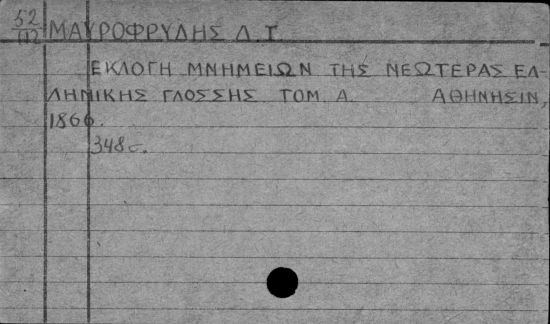 52/112 ΜΑΥΡΟΦΡΥΔΗΣ Δ.Τ.
ΕΚΛΟΓΗ ΜΝΗΜΕΙΩΝ ΤΗΣ ΝΕΩΤΕΡΑΣ ΕΛ-
ΛΗΝΙΚΗΣ ΓΛΟΣΣΗΣ ΤΟΜ. Α. ΑΘΗΝΗΣΙΝ,
1866.
348 с.